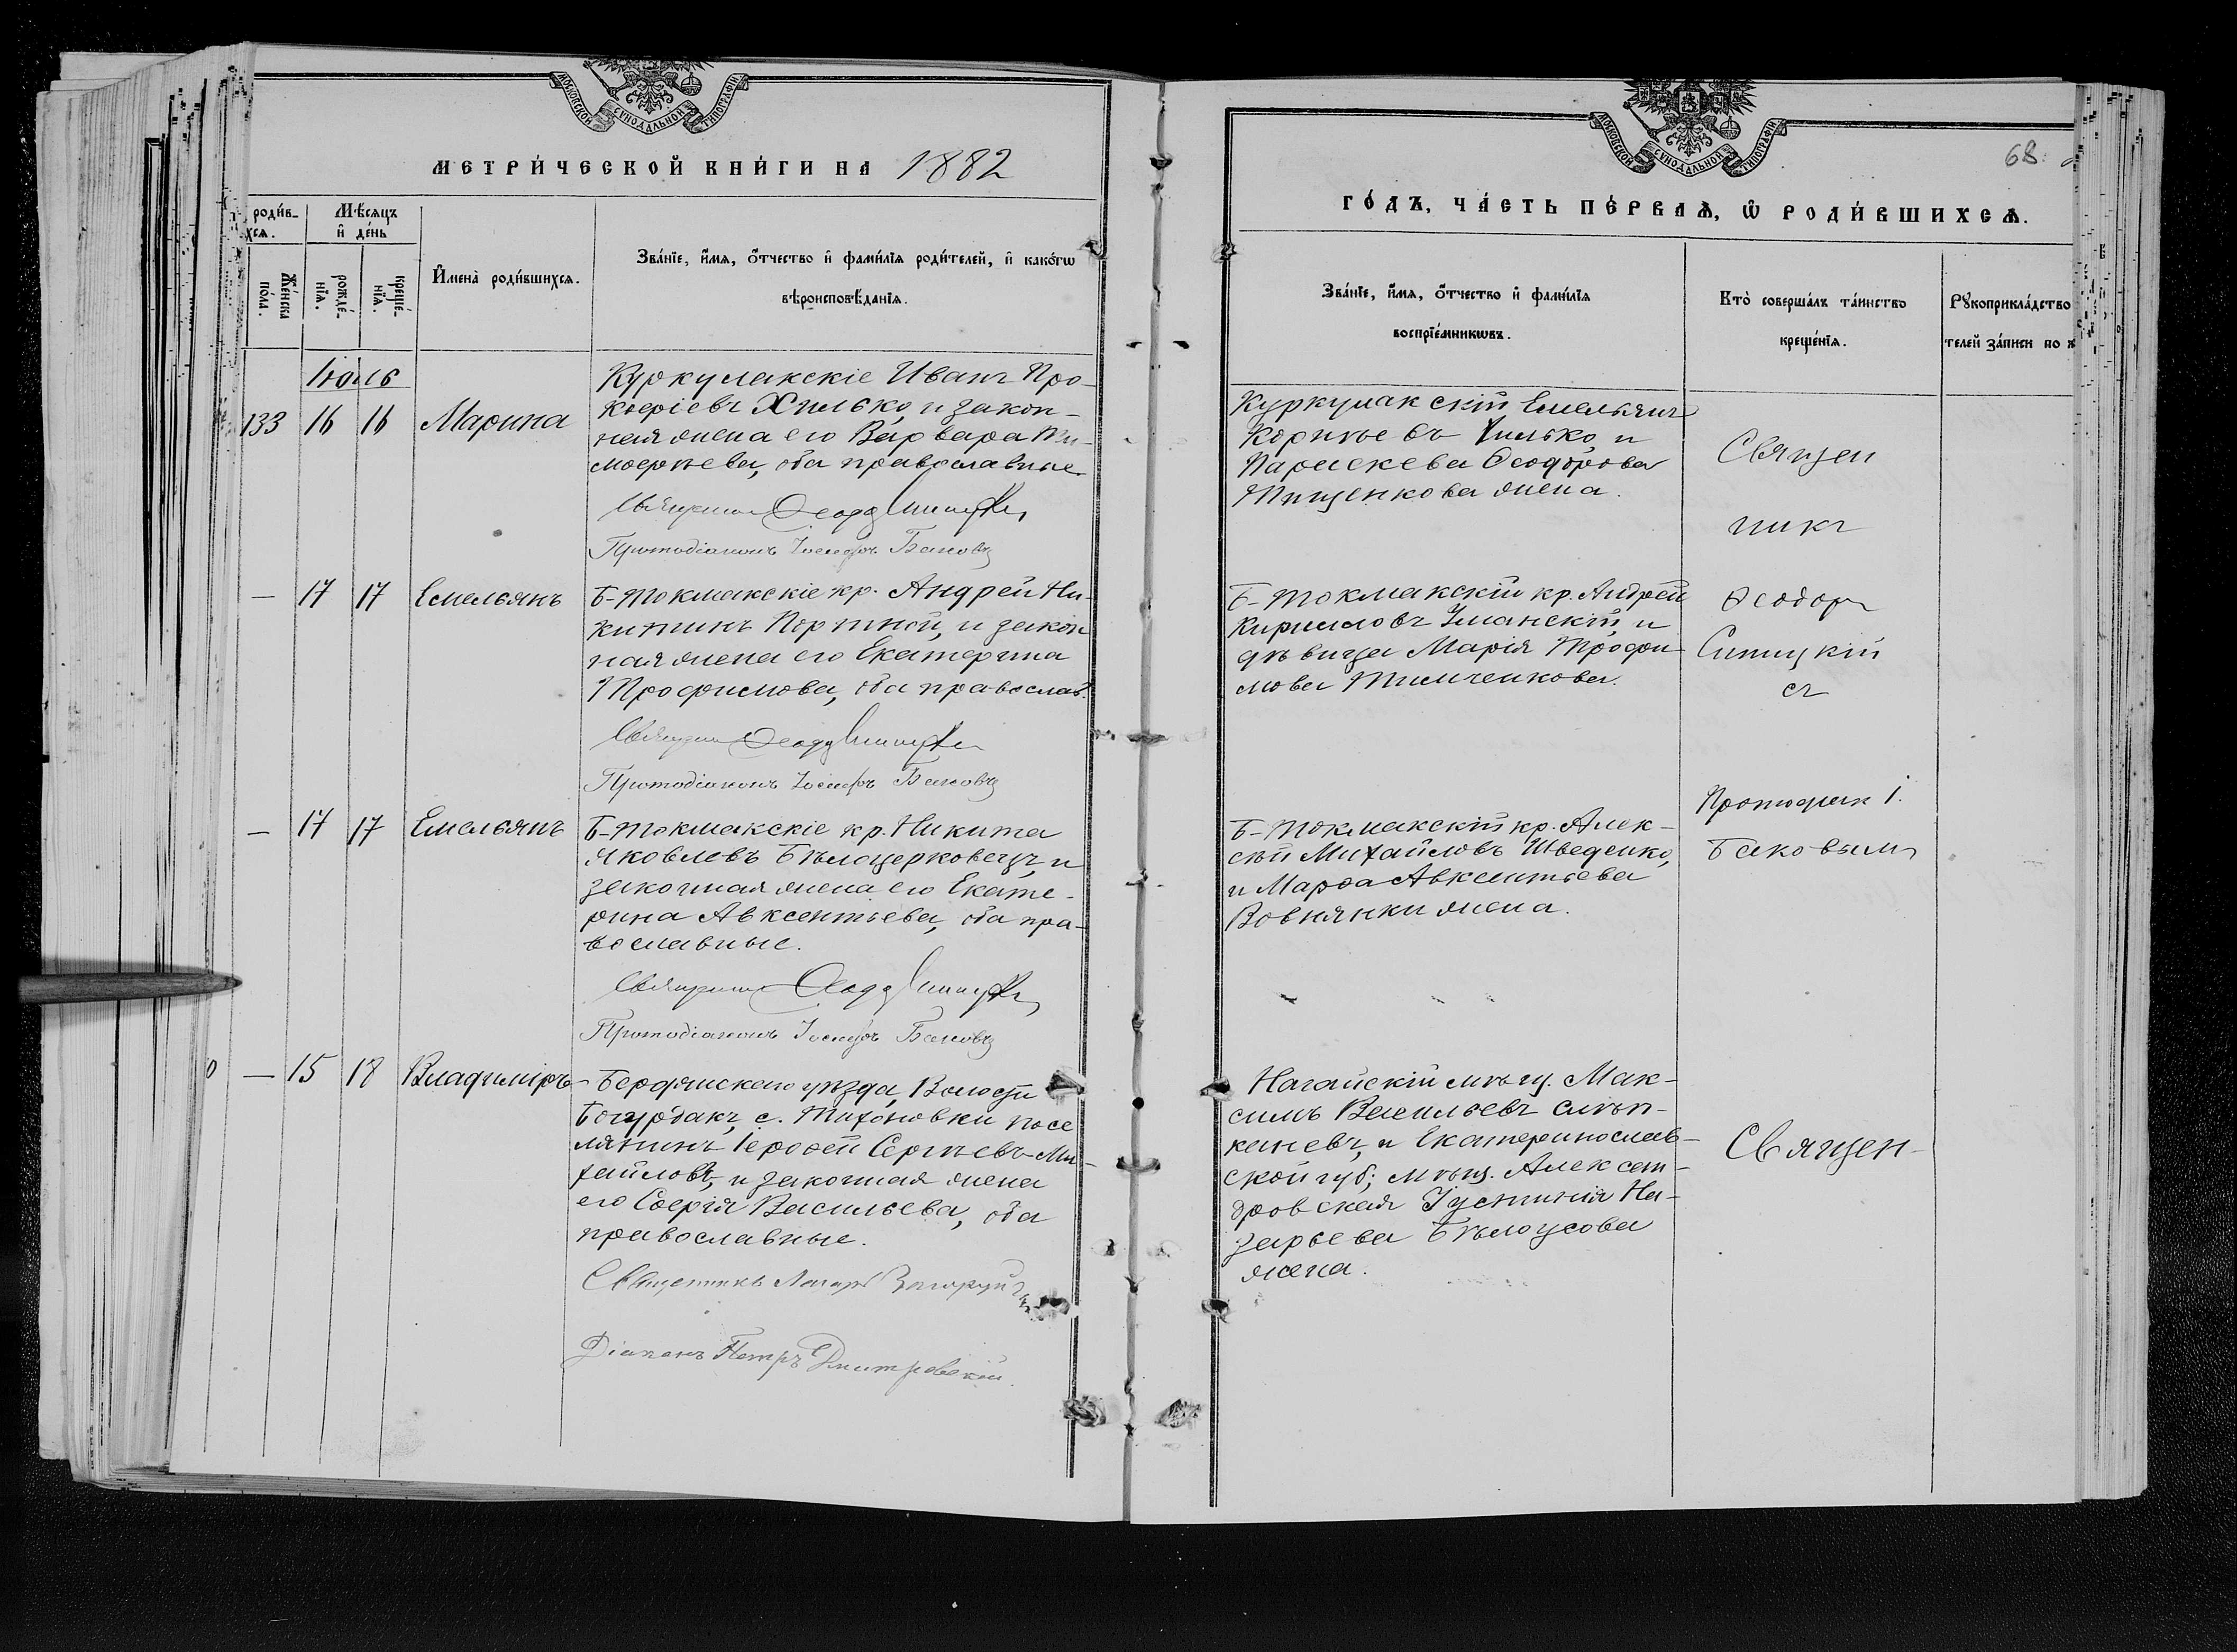 МОСКОВСКОЙ СѴНОДАЛЬНОЙ ТИПОГРАФІИ
МЕТРИ́ЧЕСКОЙ КНИ́ГИ НА 1882
роди́в-
хсѧ.
Мѣ́сѧцъ
и҆ де́нь
Же́нска
по́ла.
рожде́-
нїѧ.
креще́-
нїѧ.
И҆мена̀ роди́вшихсѧ.
Зва́нїе, и҆́мѧ, ѻ҆́тчество и҆ фами́лїѧ роди́телей, и҆ како́гѡ
вѣроисповѣ́данїѧ.
Іюль
133 16 16 Марина
Куркулакскіе Иванъ Про-
кофіевъ Хилько, и закон-
ная жена его Варвара Ти-
мофѣева, оба православные
Священникъ Ѳеодоръ Синицкій
Протодіаконъ Іосифъ Баковъ
— 17 17 Емельянъ
Б-Токмакскіе кр. Андрей Ни-
китинъ Портной, и закон
ная жена его Екатерина
Трофимова, оба православ.
Священникъ Ѳеодоръ Синицкій
Протодіаконъ Іосифъ Баковъ
— 17 17 Емельянъ
Б-Токмакскіе кр. Никита
Яковлевъ Бѣлоцерковецъ, и
законная жена его Екате-
рина Авксентьева, оба пра-
вославные.
Священникъ Ѳеодоръ Синицкій
Протодіаконъ Іосифъ Баковъ
0 — 15 18 Владиміръ
Бердянскаго уѣзда, Волости
с. Тихоновки посе
лянинъ Іероѳей Сергѣевъ Ми-
хайловъ, и законная жена
его Софія Васильева, оба
православные.
Священникъ
Діаконъ Петръ Дмитревскій.
МОСКОВСКОЙ СѴНОДАЛЬНОЙ ТИПОГРАФІИ
68.
ГО́ДЪ, ЧА́СТЬ ПЕ́РВАѦ, Ѡ҆ РОДИ́ВШИХСѦ.
Зва́нїе, и҆́мѧ, ѻ҆́тчество и҆ фами́лїѧ
воспрїе́мникѡвъ.
Кто̀ соверша́лъ та́инство
креще́нїѧ.
Рꙋкоприкла́дство
телей за́писи по
Куркулакскій Емельянъ
Корнѣевъ Хилько, и
Параскева Ѳеодорова
Тищенкова жена.
Б-Токмакскій кр. Андрей
Кирилловъ Уманскій, и
дѣвица Марія Трофи-
мова Тимченкова.
Б-Токмакскій кр. Алек-
сѣй Михайловъ Шведенко,
и Марѳа Авксентьева
Вовнянки жена.
Нагайскій мѣщ. Мак-
симъ Васильевъ Слѣп-
каневъ, и Екатеринослав-
ской губ; мѣщ. Алексан-
дровская Іустинія На-
зарьева Бѣлоусова
жена.
Священ
никъ
Ѳеодоръ
Синицкій
съ
Протодіак І.
Баковымъ
Священ-